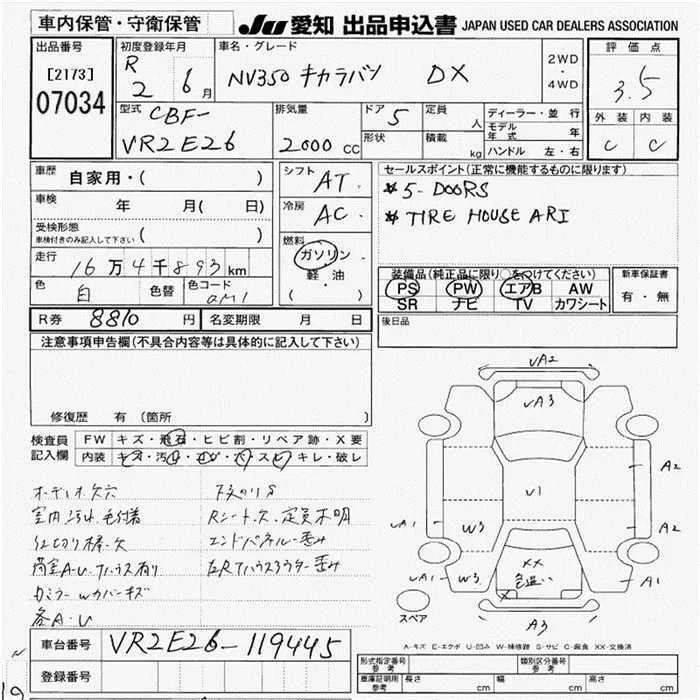 車内保管・守衛保管
JU 愛知 出品申込書 JAPAN USED CAR DEALERS ASSOCIATION
出品番号
[2173]
07034
初度登録年月
R 2 6月
車名・グレード
NV350 キャラバン DX
2WD
・
4WD
評価点
3.5
外装 内装
C C
型式 CBF-
VR2E26
排気量
2000 CC
ドア 5
形状
定員 人
積載 kg
ディーラー・並行
モデル年式 年
ハンドル 左・右
車歴
自家用・( )
車検 年 月( 日)
受検形態
車検付きのみ記入して下さい ( )
走行 16万4千893km
色 白 色替 色コード QM1
シフト AT
冷房 AC
燃料
ガソリン
軽・油
( )
セールスポイント(正常に機能するものに限ります)
* 5-DOORS
* TIRE HOUSE ARI
装備品(純正品に限り○をつけてください)
PS PW エアB AW
SR ナビ TV カワシート
新車保証書
有・無
R券 8810 円 名変期限 月 日
後日品
注意事項申告欄(不具合内容等は具体的に記入して下さい)
修復歴 有(箇所
検査員
記入欄
FW キズ・飛石・ヒビ割・リペア跡・X要
内装 キズ・汚れ・コゲ・穴・スレ・キレ・破レ
オーディオ欠穴
室内汚れ、毛付着 Rシート欠、定員不明
エンドパネル歪み
荷室A・U
各A・U
UA2
UA3
A2
U1
UA1 W3 A2
UA1 W3 XX 色違い A1
X
A3
スペア
A-キズ E-エクボ U-凹み W-補修跡 S-サビ C-腐食 XX-交換済
車台番号 VR2E26-119445
登録番号
形式指定番号 参考
類別区分番号 参考
車庫証明用 参考 長さ cm 幅 cm 高さ cm